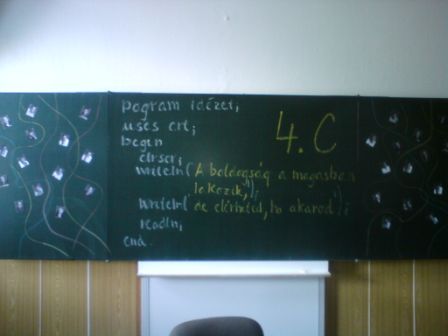 program idézet;
uses crt;
begin
clrscr;
writeln('A boldogság a magasban
lakozik,');
writeln('de elérheted, ha akarod');
readln;
end.
4.C